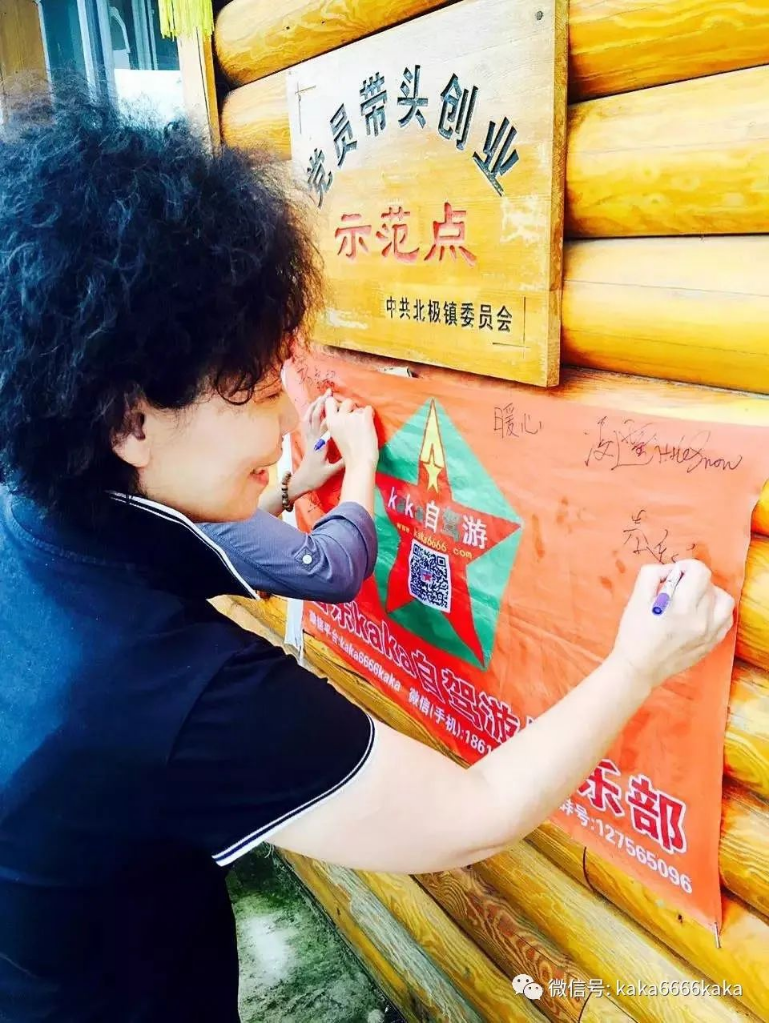 党员带头创业
示范点
中共北极镇委员会
暖心
Snow
kaka自驾游
www.kaka6666.com
kaka自驾游
乐部
微信平台:kaka6666kaka 微信(手机):1861
群号:127565096
微信号: kaka6666kaka